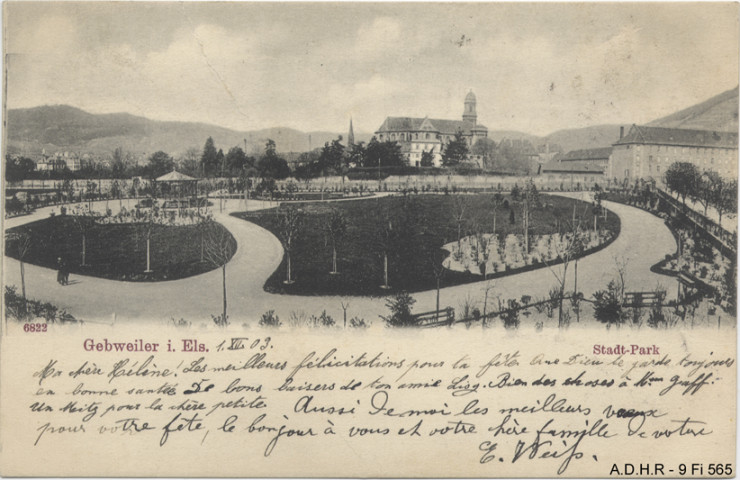 6822
Gebweiler i. Els. 1. XII. 03. Stadt-Park
Ma chère Hélène. Les meilleurs félicitations pour ta fête Que Dieu te garde toujours
en bonne santé De bons baisers de ton amie Lisy. Bien des choses à Mme Graff.
Un Mitz pour la chère petite Aussi de moi les meilleurs veaux
pour votre fête, le bonjour à vous et votre chère famille de votre
E. Weiß.
A.D.H.R - 9 Fi 565